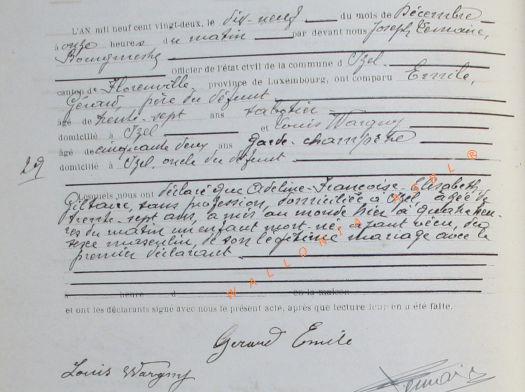 L'AN mil neuf cent vingt-deux, le dix-neuf du mois de Décembre
à onze heures du matin par devant nous Joseph Lemaire,
Bourgmestre officier de l'état civil de la commune d'Izel
canton de Florenville, province de Luxembourg, ont comparu Emile,
Gérard, père du défunt
âgé de trente-sept ans sabotier
domicilié à Izel et Louis Wargny
âgé de cinquante deux ans garde-champêtre
29
domicilié à Izel, oncle du défunt
Lesquels nous ont déclaré que Adeline-Françoise-Elisabeth
sans profession, domiciliée à Izel, âgée de
trente-sept ans, a mis au monde hier à quatre heu-
res du matin un enfant mort-né, ayant vécu, du
sexe masculin, de son légitime mariage avec le
premier déclarant
à heure d en la maison
et ont les déclarants signé avec nous le présent acte, après que lecture leur en a été faite.
WALLONIA ASBL ®
Gerard Emile
Louis Wargny
Lemaire